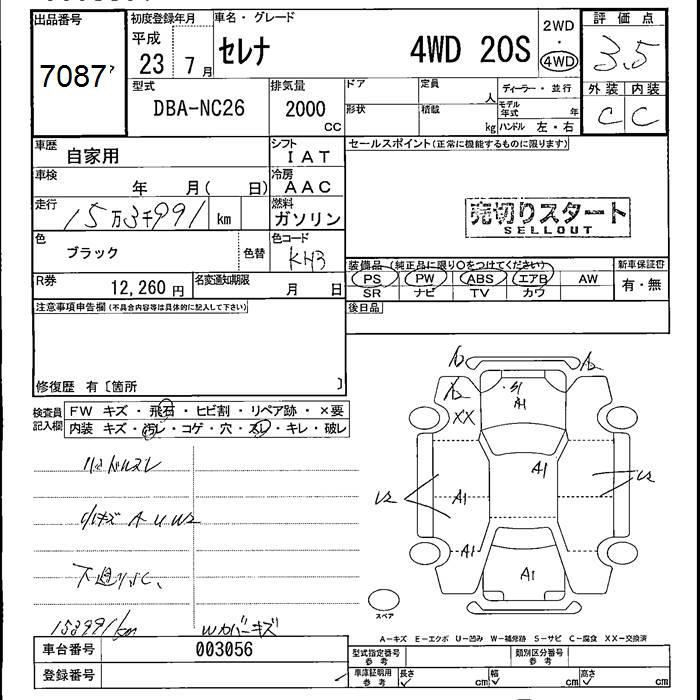 出品番号
7087
初度登録年月
平成
23 7月
車名・グレード
セレナ 4WD 20S
2WD
・
4WD
評価点
3.5
外装 内装
C C
型式
DBA-NC26
排気量
2000
cc
ドア
形状
定員
人
積載
kg
ディーラー・並行
モデル年式
年
ハンドル 左・右
車歴
自家用
シフト
IAT
車検
年 月( 日)
冷房
AAC
走行
15万3千991 km
燃料
ガソリン
色
ブラック
色替
色コード
KH3
R券
12,260 円
名変通知期限
月 日
セールスポイント(正常に機能するものに限ります)
売切りスタート
SELLOUT
装備品(純正品に限り○をつけてください)
新車保証書
PS PW ABS エアB AW
SR ナビ TV カワ
有・無
後日品
注意事項申告欄(不具合内容等は具体的に記入して下さい)
修復歴 有〔箇所 〕
検査員記入欄
FW キズ・飛石・ヒビ割・リペア跡・×要
内装 キズ・汚レ・コゲ・穴・スレ・キレ・破レ
ハンドルスレ
小キズ A U W2
下廻りSC、
153991km
Wカバーキズ
A2
XX
A1
A1
U2
A1
U2
A1
A1
スペア
A−キズ E−エクボ U−凹み W−補修跡 S−サビ C−腐食 XX−交換済
車台番号
003056
登録番号
型式指定番号
参考
類別区分番号
参考
車庫証明用
参考
長さ cm
幅 cm
高さ cm